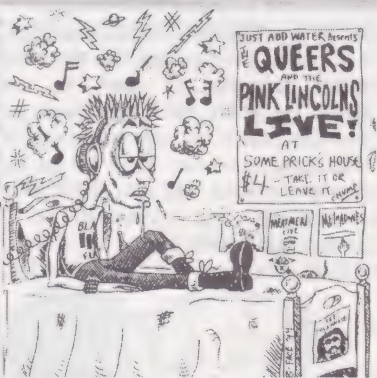 JUST ADD WATER Presents
THE QUEERS
AND THE
PINK LINCOLNS
LIVE!
AT
SOME PRICK'S HOUSE
$4. - TAKE IT OR
LEAVE IT
MEATMEN
LIVE